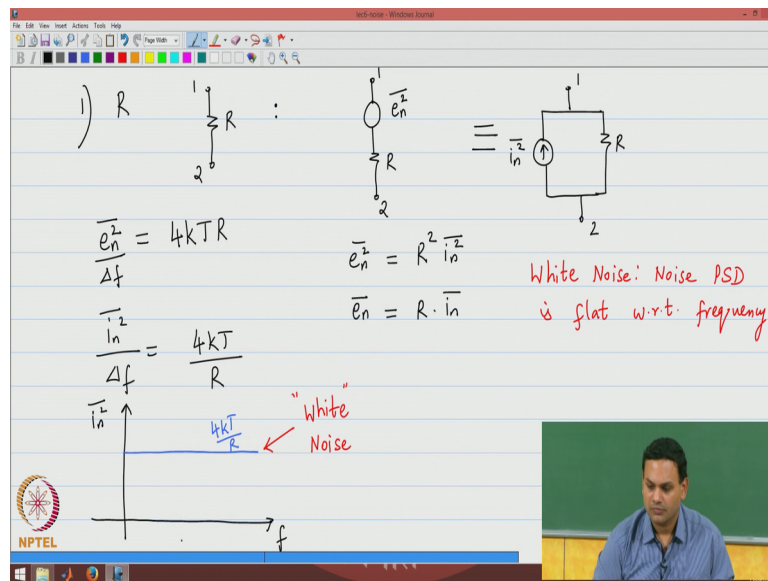 lec6-noise - Windows Journal
File Edit View Insert Actions Tools Help
Page Width
B I
1) R
1
R
2
:
1
\overline{e_n^2}
R
2
≡
1
\overline{i_n^2}
R
2
\overline{e_n^2}/Δf = 4kTR
\overline{e_n^2} = R^2 \overline{i_n^2}
\overline{e_n} = R · \overline{i_n}
\overline{i_n^2}/Δf = 4kT/R
White Noise: Noise PSD
is flat w.r.t. frequency
\overline{i_n^2}
4kT/R
"White"
Noise
f
NPTEL